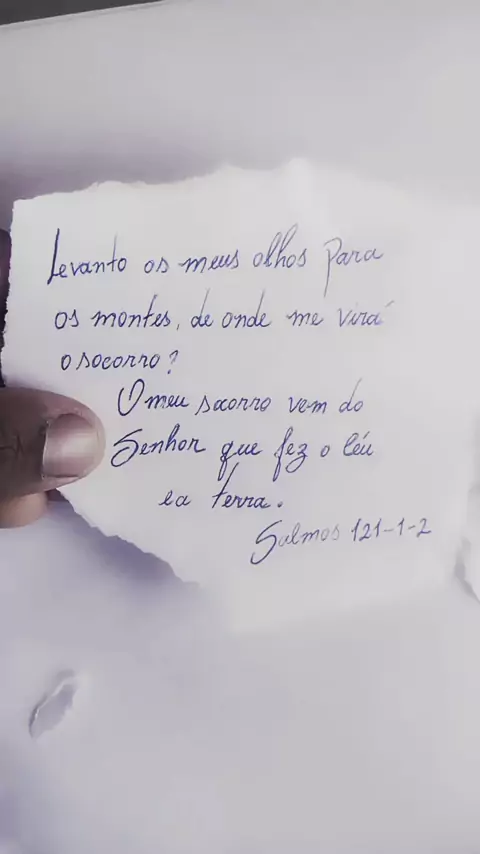 Levanto os meus olhos para
os montes, de onde me virá
o socorro?
O meu socorro vem do
Senhor que fez o Céu
e a terra.
Salmos 121-1-2